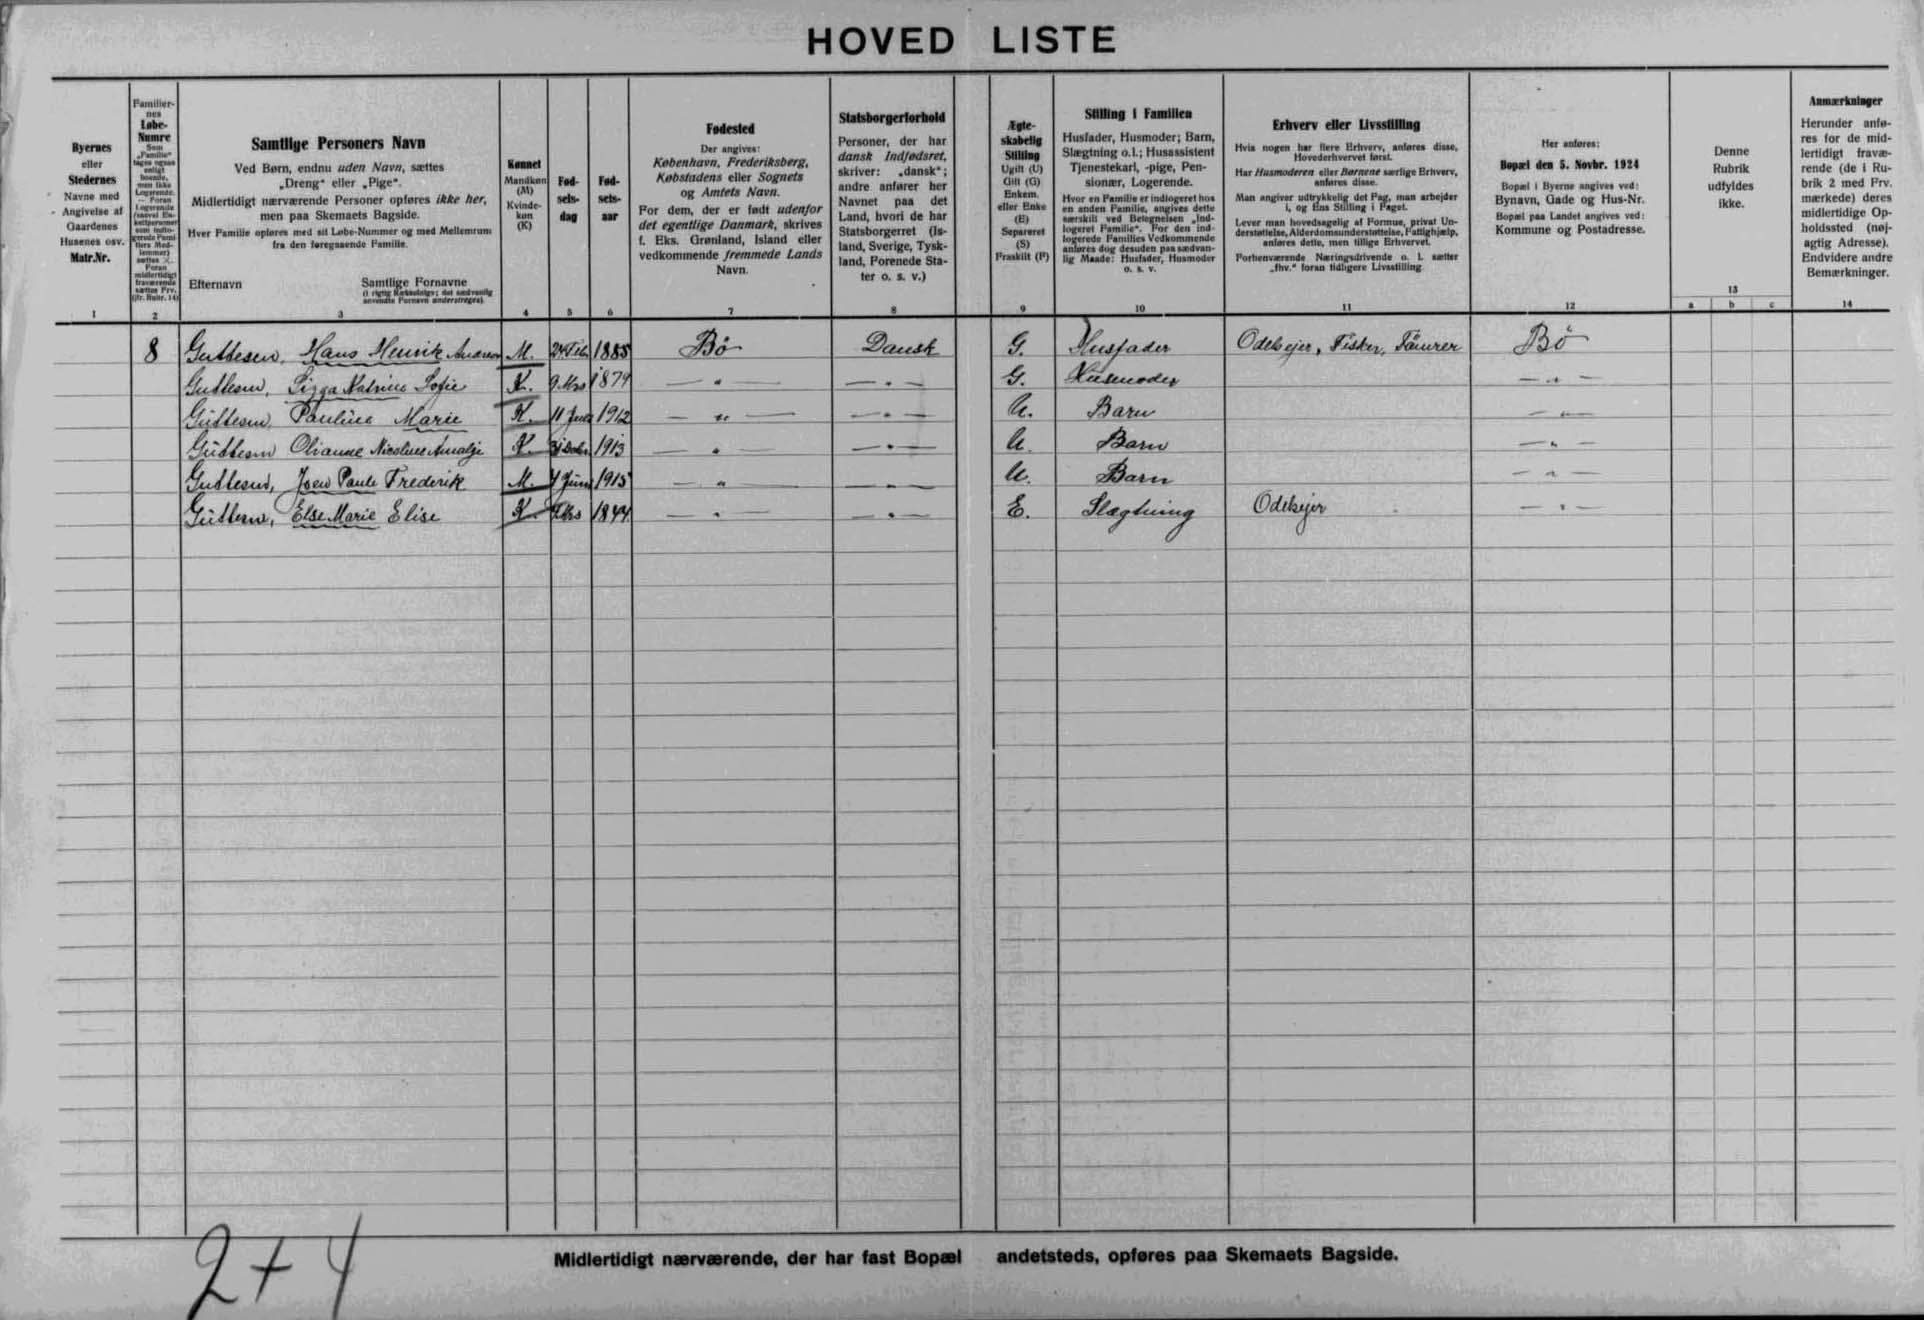 HOVED LISTE
Byernes
eller
Stedernes
Navne med
Angivelse af
Gaardenes
Husenes osv.
Matr.Nr.
1
Familier-
nes
Løbe-
Numre
Som
„Familie“
tages ogsaa
enligt
boende,
men ikke
Logerende.
— Foran
Logerende
(saavel En-
keltpersoner
som indlo-
gerede Fami-
liers Med-
lemmer)
sættes ×.
Foran
midlertidigt
fraværende
sættes Frv.
(jfr. Rubr. 14)
2
Samtlige Personers Navn
Ved Børn, endnu uden Navn, sættes
„Dreng“ eller „Pige“.
Midlertidigt nærværende Personer opføres ikke her,
men paa Skemaets Bagside.
Hver Familie opføres med sit Løbe-Nummer og med Mellemrum
fra den foregaaende Familie.
Efternavn Samtlige Fornavne
(i rigtig Rækkefølge; det sædvanlig
anvendte Fornavn understreges).
3
Kønnet
Mandkøn
(M)
Kvinde-
køn
(K)
4
Fød-
sels-
dag
5
Fød-
sels-
aar
6
Fødested
Der angives:
København, Frederiksberg,
Købstadens eller Sognets
og Amtets Navn.
For dem, der er født udenfor
det egentlige Danmark, skrives
f. Eks. Grønland, Island eller
vedkommende fremmede Lands
Navn.
7
Statsborgerforhold
Personer, der har
dansk Indfødsret,
skriver: „dansk“;
andre anfører her
Navnet paa det
Land, hvori de har
Statsborgerret (Is-
land, Sverige, Tysk-
land, Forenede Sta-
ter o. s. v.)
8
Ægte-
skabelig
Stilling
Ugift (U)
Gift (G)
Enkem.
eller Enke
(E)
Separeret
(S)
Fraskilt (F)
9
Stilling i Familien
Husfader, Husmoder; Barn,
Slægtning o.l.; Husassistent
Tjenestekarl, -pige, Pen-
sionær, Logerende.
Hvor en Familie er indlogeret hos
en anden Familie, angives dette
særskilt ved Betegnelsen „Ind-
logeret Familie“. For den ind-
logerede Families Vedkommende
anføres dog desuden paa sædvan-
lig Maade: Husfader, Husmoder
o. s. v.
10
Erhverv eller Livsstilling
Hvis nogen har flere Erhverv, anføres disse,
Hovederhvervet først.
Har Husmoderen eller Børnene særlige Erhverv,
anføres disse.
Man angiver udtrykkelig det Fag, man arbejder
i, og Ens Stilling i Faget.
Lever man hovedsagelig af Formue, privat Un-
derstøttelse, Alderdomsunderstøttelse, Fattighjælp,
anføres dette, men tillige Erhvervet.
Forhenværende Næringsdrivende o. l. sætter
„fhv.“ foran tidligere Livsstilling.
11
Her anføres:
Bopæl den 5. Novbr. 1924
Bopæl i Byerne angives ved:
Bynavn, Gade og Hus-Nr.
Bopæl paa Landet angives ved:
Kommune og Postadresse.
12
Denne
Rubrik
udfyldes
ikke.
13
a b c
Anmærkninger
Herunder anfø-
res for de mid-
lertidigt fravæ-
rende (de i Ru-
brik 2 med Frv.
mærkede) deres
midlertidige Op-
holdssted (nøj-
agtig Adresse).
Endvidere andre
Bemærkninger.
14
8 Guttesen, Hans Henrik Andreas M. 24 Feb 1885 Bø Dansk G. Husfader Odelsejer, Fisker, Tömrer Bø
Guttesen, Sigga Katrine Sofie K. 9 Mrs 1879 — „ — — „ — G. Husmoder — „ —
Guttesen, Pauline Marie K. 11 1912 — „ — — „ — U. Barn — „ —
Guttesen Olianne Nicoline Amalje K. 1913 — „ — — „ — U. Barn — „ —
Guttesen, Joen Paule Frederik M. Juni 1915 — „ — — „ — U. Barn — „ —
Guttesen, Else Marie Elise K. Mrs 1844 — „ — — „ — E. Slægtning Odelsejer — „ —
Midlertidigt nærværende, der har fast Bopæl andetsteds, opføres paa Skemaets Bagside.
2+4